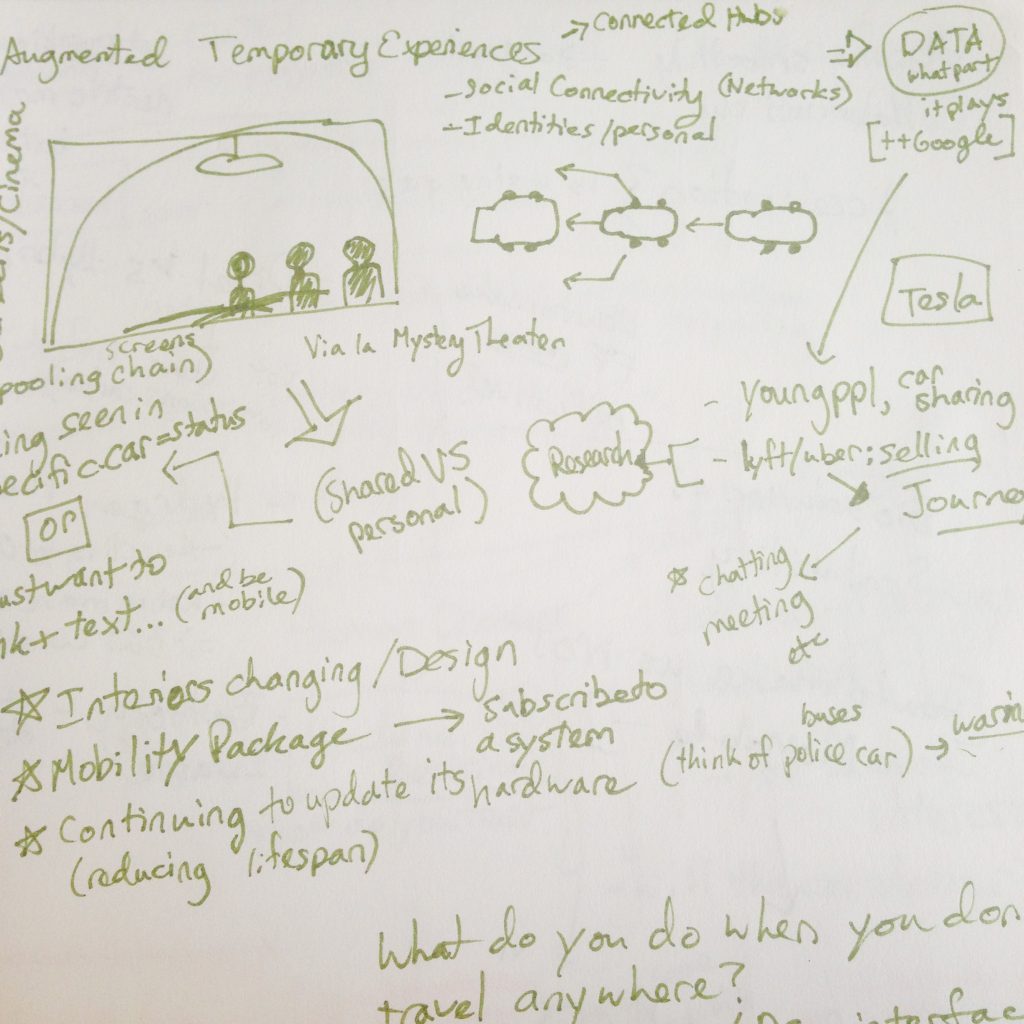 Augmented Temporary Experiences
=> Connected Hubs
- social Connectivity (Networks)
- Identities/personal
=> DATA
what part
it plays
[++Google]
/Cinema
Tesla
screens
pooling chain)
Via la Mystery Theater
seen in
car = status
or
want to
+ text... (and be
mobile)
(Shared VS
personal)
Research
- young ppl, car
sharing
- lyft/uber: selling
* chatting
meeting
etc
* Interiors changing/Design
* Mobility Package → subscribe to
a system
* Continuing to update its hardware
(reducing lifespan)
buses
(think of police car) →
What do you do when you
travel anywhere?